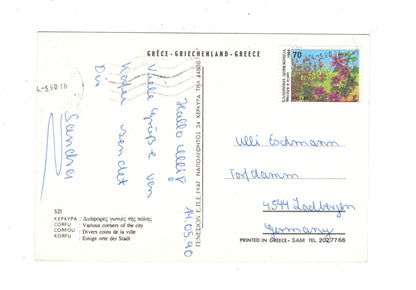 GRÈCE - GRIECHENLAND - GREECE
4.-5.90-16
70
ΕΛΛΗΝΙΚΗ ΔΗΜΟΚΡΑΤΙΑ
14.05.90
Hallo Ulli!
Viele Grüße von
Korfu sendet
Dir
Sandra
Ulli Eschmann
Torfdamm
4544 Ladbergen
Germany
521
ΚΕΡΚΥΡΑ : Διάφορες γωνιές τής πόλης
CORFU : Various corners of the city
CORFOU : Divers coins de la ville
KORFU : Einige orte der Stadt
PRINTED IN GREECE - SAM TEL. 2027766